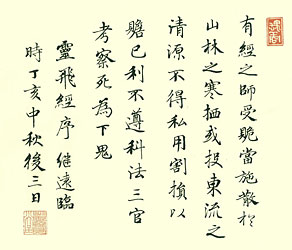 有經之師受賧當施散於
山林之寒栖或投東流之
清源不得私用割損以
贍己利不遵科法三官
考察死為下鬼
靈飛經序 繼遠臨
時丁亥中秋後三日